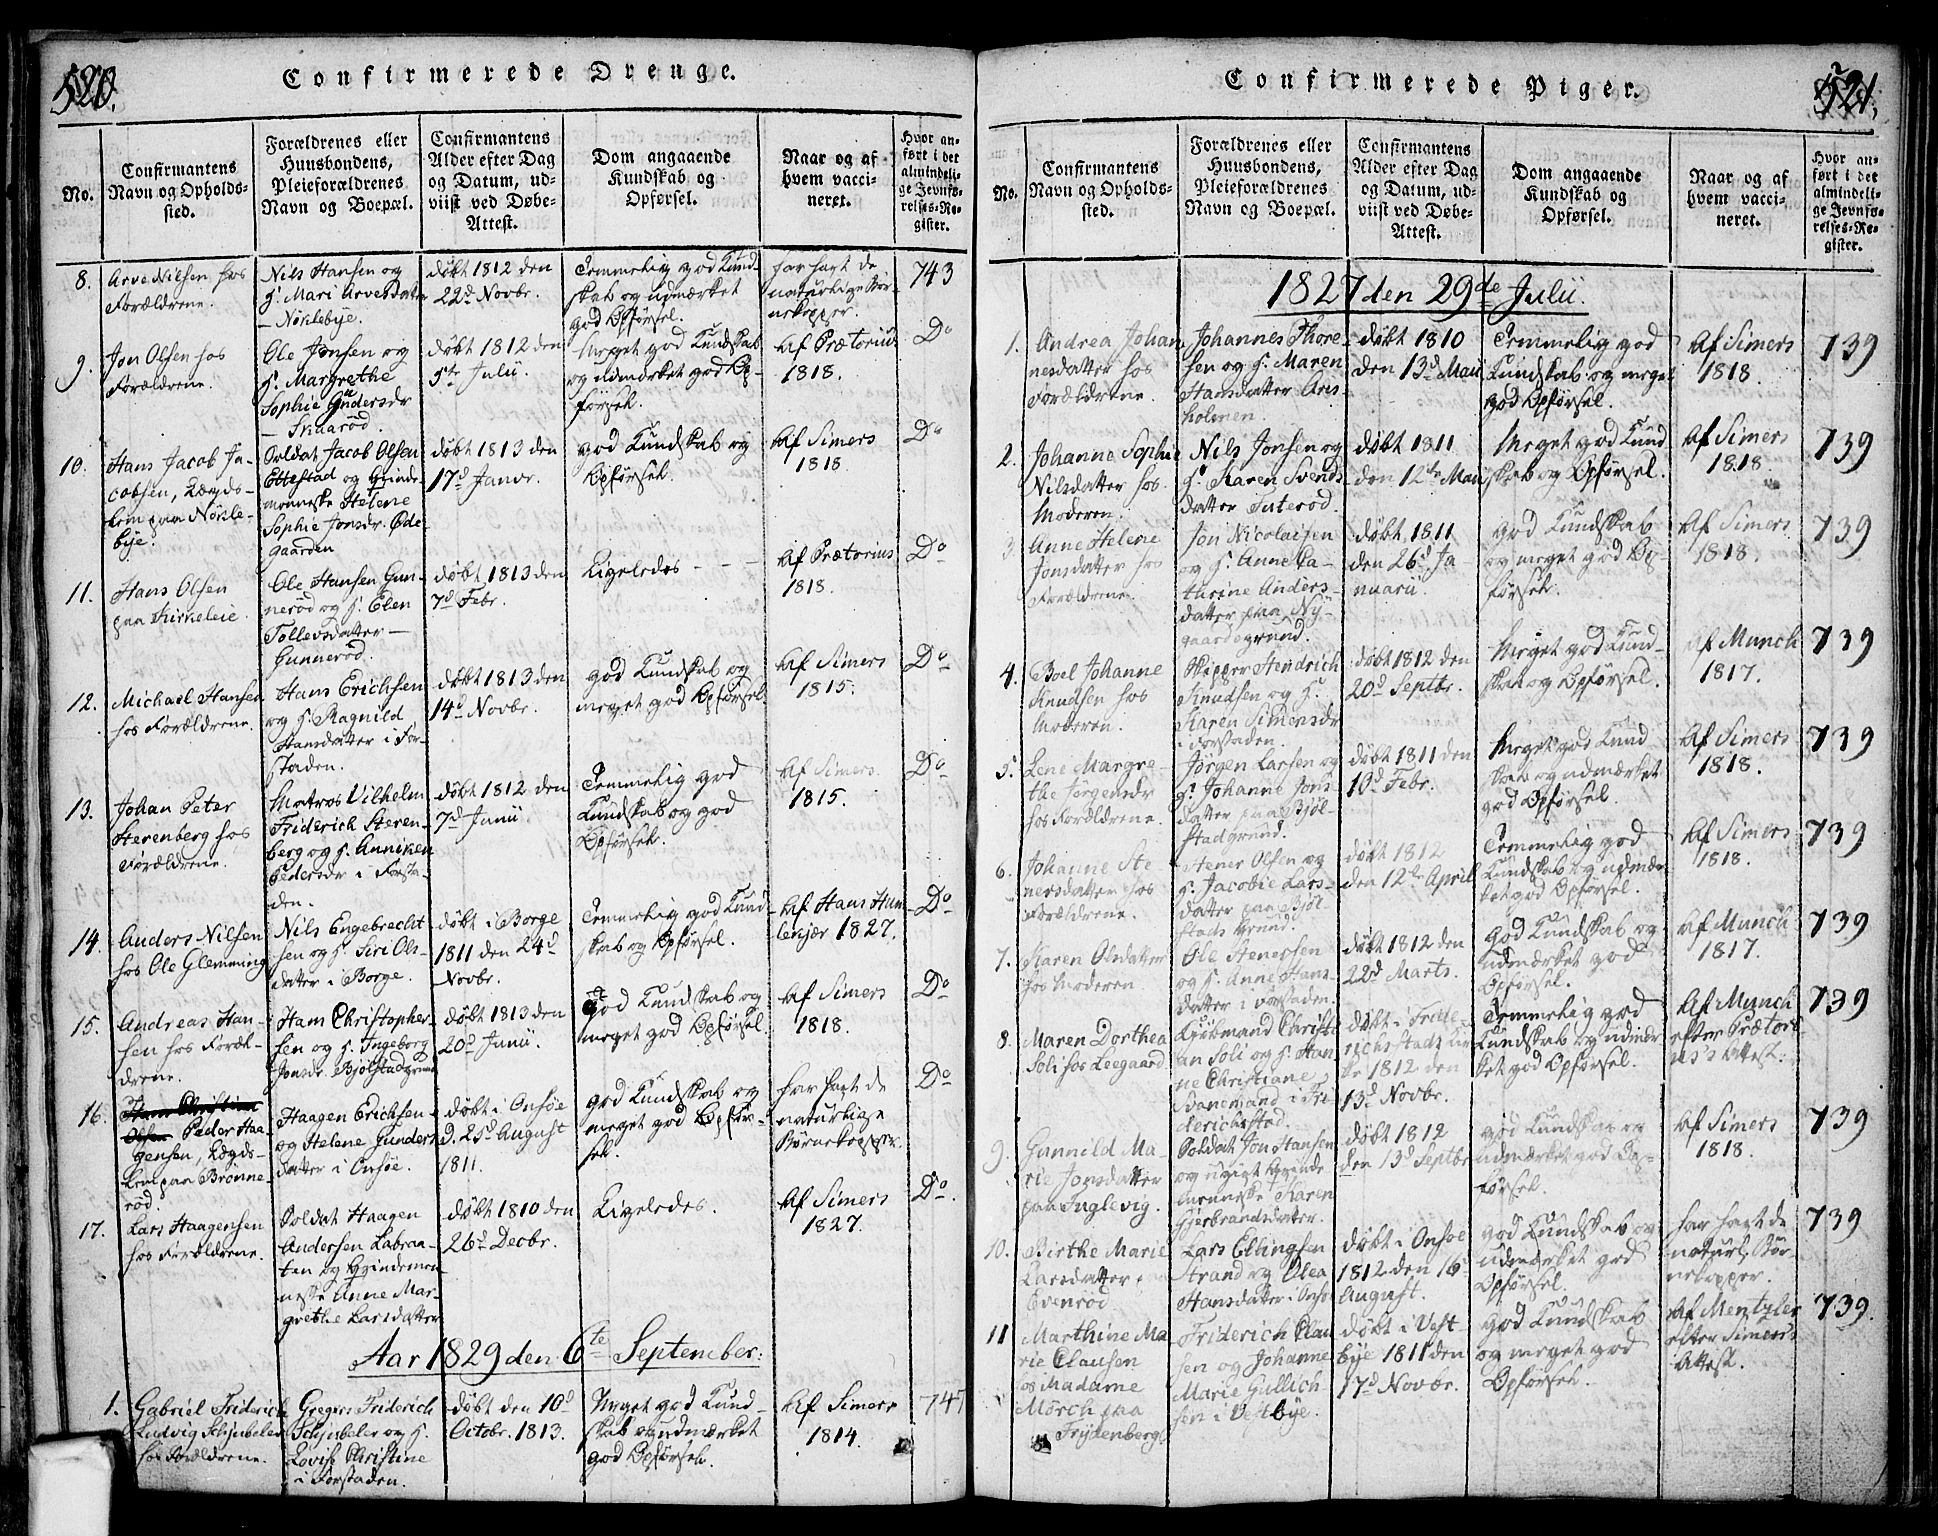 520.
Confirmerede Drenge.
No.
Confirmantens
Navn og Opholds-
sted.
Forældrenes eller
Huusbondens,
Pleieforældrenes
Navn og Boepæl.
Confirmantens
Alder efter Dag
og Datum, ud-
viist ved Døbe-
Attest.
Dom angaaende
Kundskab og
Opførsel.
Naar og af
hvem vacci-
neret.
Hvor an-
ført i det
almindeli-
ge Jevnfø-
relses-Re-
gister.
8.
Arve Nilsen hos
Forældrene.
Nils Hansen og
H. Mari Arvesdatter
— Nøklebye.
døbt 1812 den
22d Novbr.
Temmelig god Kund-
skab og udmærket
god Opførsel.
har havt de
naturlige Bør-
nekopper.
743
9.
Jon Olsen hos
Forældrene.
Ole Jonsen og
H. Margrethe
Sophie Gundersdr
— Skaarød.
døbt 1812 den
5te Julii.
Meget god Kundskab
og udmærket god Op-
førsel.
Af Prætorius
1818.
Do
10.
Hans Jacob Ja-
cobsen, Lægds-
lem paa Nøkle-
bye.
Soldat Jacob Olsen
Ettestad og Qvinde-
menneske Helene
Sophie Jonsdr. Øde-
gaarden
døbt 1813 den
17d Janvr.
god Kundskab og
Opførsel.
Af Simers
1818.
Do
11.
Hans Olsen
paa Kirkeleie.
Ole Hansen Gun-
nerød og H. Elen
Tollevsdatter —
Gunnerød.
døbt 1813 den
7d Febr.
Ligeledes - - -
Af Prætorius
1818.
Do
12.
Michael Hansen
hos Forældrene.
Hans Erichsen
og H. Ragnild
Hansdatter i For-
staden.
døbt 1813 den
14d Novbr.
god Kundskab og
meget god Opførsel
Af Simers
1815.
Do
13.
Johan Peter
Sterenberg hos
Forældrene.
Matros Vilhelm
Friderich Steren-
berg og H. Anniken
Pedersdr i Forsta-
den.
døbt 1812 den
7d Junii.
Temmelig god
Kundskab og god
Opførsel.
Af Simers
1815.
Do
14.
Anders Nilsen
hos Ole Glemming
Nils Engebrecht
sen og H. Siri Ols-
datter i Borge.
døbt i Borge
1811 den 24d
Novbr.
Temmelig god Kund-
skab og Opførsel.
Af Hans Hum-
lekjær 1827.
Do
15.
Andreas Han-
sen hos Foræl-
drene.
Hans Christopher-
sen og H. Ingeborg
Jonsdr. Bjølstadgrund
døbt 1813 den
20d Junii.
god Kundskab og
meget god Opførsel.
Af Simers
1818.
Do
16.
Hans Christian
Olsen Peder Haa-
gensen, Lægds-
lem paa Brønne-
rød.
Haagen Erichsen
og Helene Gunders
datter i Onsøe.
døbt i Onsøe
d. 25d August
1811.
god Kundskab og
meget god Opfør-
sel.
Har havt de
naturlige
Børnekopper.
Do
17.
Lars Haagensen
hos Forældrene.
Soldat Haagen
Andersen Labraa-
ten og Qvindemen-
neske Anne Mar-
grethe Larsdatter
døbt 1810 den
26d Decbr.
Ligeledes.
Af Simers
1827.
Do.
Aar 1829 den 6te September:
1.
Gabriel Friderich
Ludvig Schjubeler
hos Forældrene.
Gregers Friderich
Schjubeler og H.
Lovise Christine
i Forstaden.
døbt den 10d
Octobr. 1813.
Meget god Kund-
skab og udmærket
god Opførsel.
Af Simers
1814.
747
521.
Confirmerede Piger.
No.
Confirmantens
Navn og Opholds-
sted.
Forældrenes eller
Huusbondens,
Pleieforældrenes
Navn og Boepæl.
Confirmantens
Alder efter Dag
og Datum, ud-
viist ved Døbe-
Attest.
Dom angaaende
Kundskab og
Opførsel.
Naar og af
hvem vacci-
neret.
Hvor an-
ført i det
almindeli-
ge Jevnfø-
relses-Re-
gister.
1827 den 29de Julii.
1.
Andrea Johan
nesdatter hos
Forældrene.
Johannes Thore-
sen og H. Maren
Hansdatter Aris
holmen.
døbt 1810
den 13d Maii
Temmelig god
Kundskab og meget
god Opførsel.
Af Simers
1818.
739
2.
Johanne Sophie
Nilsdatter hos
Moderen.
Nils Jonsen og
H. Karen Svends
datter Tuterød.
døbt 1811
den 12te Maii
Meget god Kund
skab og Opførsel.
Af Simers
1818
739
3.
Anne Helene
Jonsdatter hos
Forældrene.
Jon Nicolaisen
og H. Anne Ca-
thrine Anders-
datter paa Ny-
gaardsgrund.
døbt 1811
den 26d Ja-
nuarii.
god Kundskab
og meget god Op
førsel.
Af Simers
1818.
739
4.
Boel Johanne
Knudsen hos
Moderen.
Skipper Hendrich
Knudsen og H.
Karen Simensdr
i Forstaden.
døbt 1812 den
20d Septbr.
Meget god Kund-
skab og Opførsel.
Af Munch
1817.
739
5.
Lene Margre-
the Jørgensdr
hos Forældrene.
Jørgen Larsen og
H. Johanne Jons
datter paa Bjøl-
stadgrund.
døbt 1811 den
10d Febr.
Meget god Kund
skab og udmærket
god Opførsel.
Af Simers
1818.
739
6.
Johanne Ste
nersdatter hos
Forældrene.
Stener Olsen og
H. Jacobie Lars-
datter paa Bjøl-
stads grund.
døbt 1812
den 12te April
Temmelig god
Kundskab og udmær
ket god Opførsel.
Af Simers
1818.
739
7.
Karen Olsdatter
hos Moderen
Ole Stenersen
og H. Anne Hans-
datter i Forstaden.
døbt 1812 den
22d Marts.
god Kundskab og
udmærket god
Opførsel.
Af Munch
1817.
739
8.
Maren Dorthea
Soli hos Leegaard
Christi
an Soli og H. Han
ne Christiane
Svanemand i Fri
derichsstad.
døbt i Fride-
richsstads Kir
ke 1812 den
13d Novbr.
Temmelig god
Kundskab og udmær
ket god Opførsel.
Af Munch
efter Prætori
us's Attest.
739
9.
Gunneld Ma-
rie Jonsdatter
paa Fuglevig.
Soldat Jon Hansen
og ugivt Qvinde
menneske Karen
Gjerbrandsdatter.
døbt 1812
den 13d Septbr
god Kundskab og
udmærket god Op-
førsel.
Af Simers
1818.
739
10.
Birthe Marie
Larsdatter
Evenrød
Lars Ellingsen
Strand og Olea
Hansdatter i Onsø
døbt i Onsøe
1812 den 16
August.
god Kundskab og
udmærket god
Opførsel.
har havt de
naturl. Bør-
nekopper.
739
11
Marthine Ma
rie Clausen
os Madame
Mørch paa
Frydenberg
Friderich Clau
sen og Johanne
Marie Gullich
sen i Vestbye.
døbt i Vest-
bye 1811 den
17d Novbr.
god Kundskab
og meget god
Opførsel.
Af Mentzler
efter Simers's
Attest.
739.